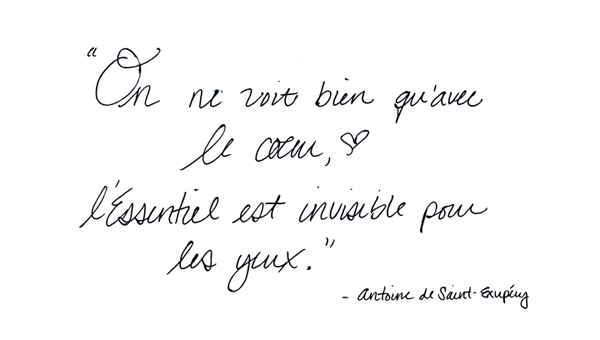 "On ne voit bien qu'avec
le cœur,
l'Essentiel est invisible pour
les yeux."
- Antoine de Saint-Exupéry